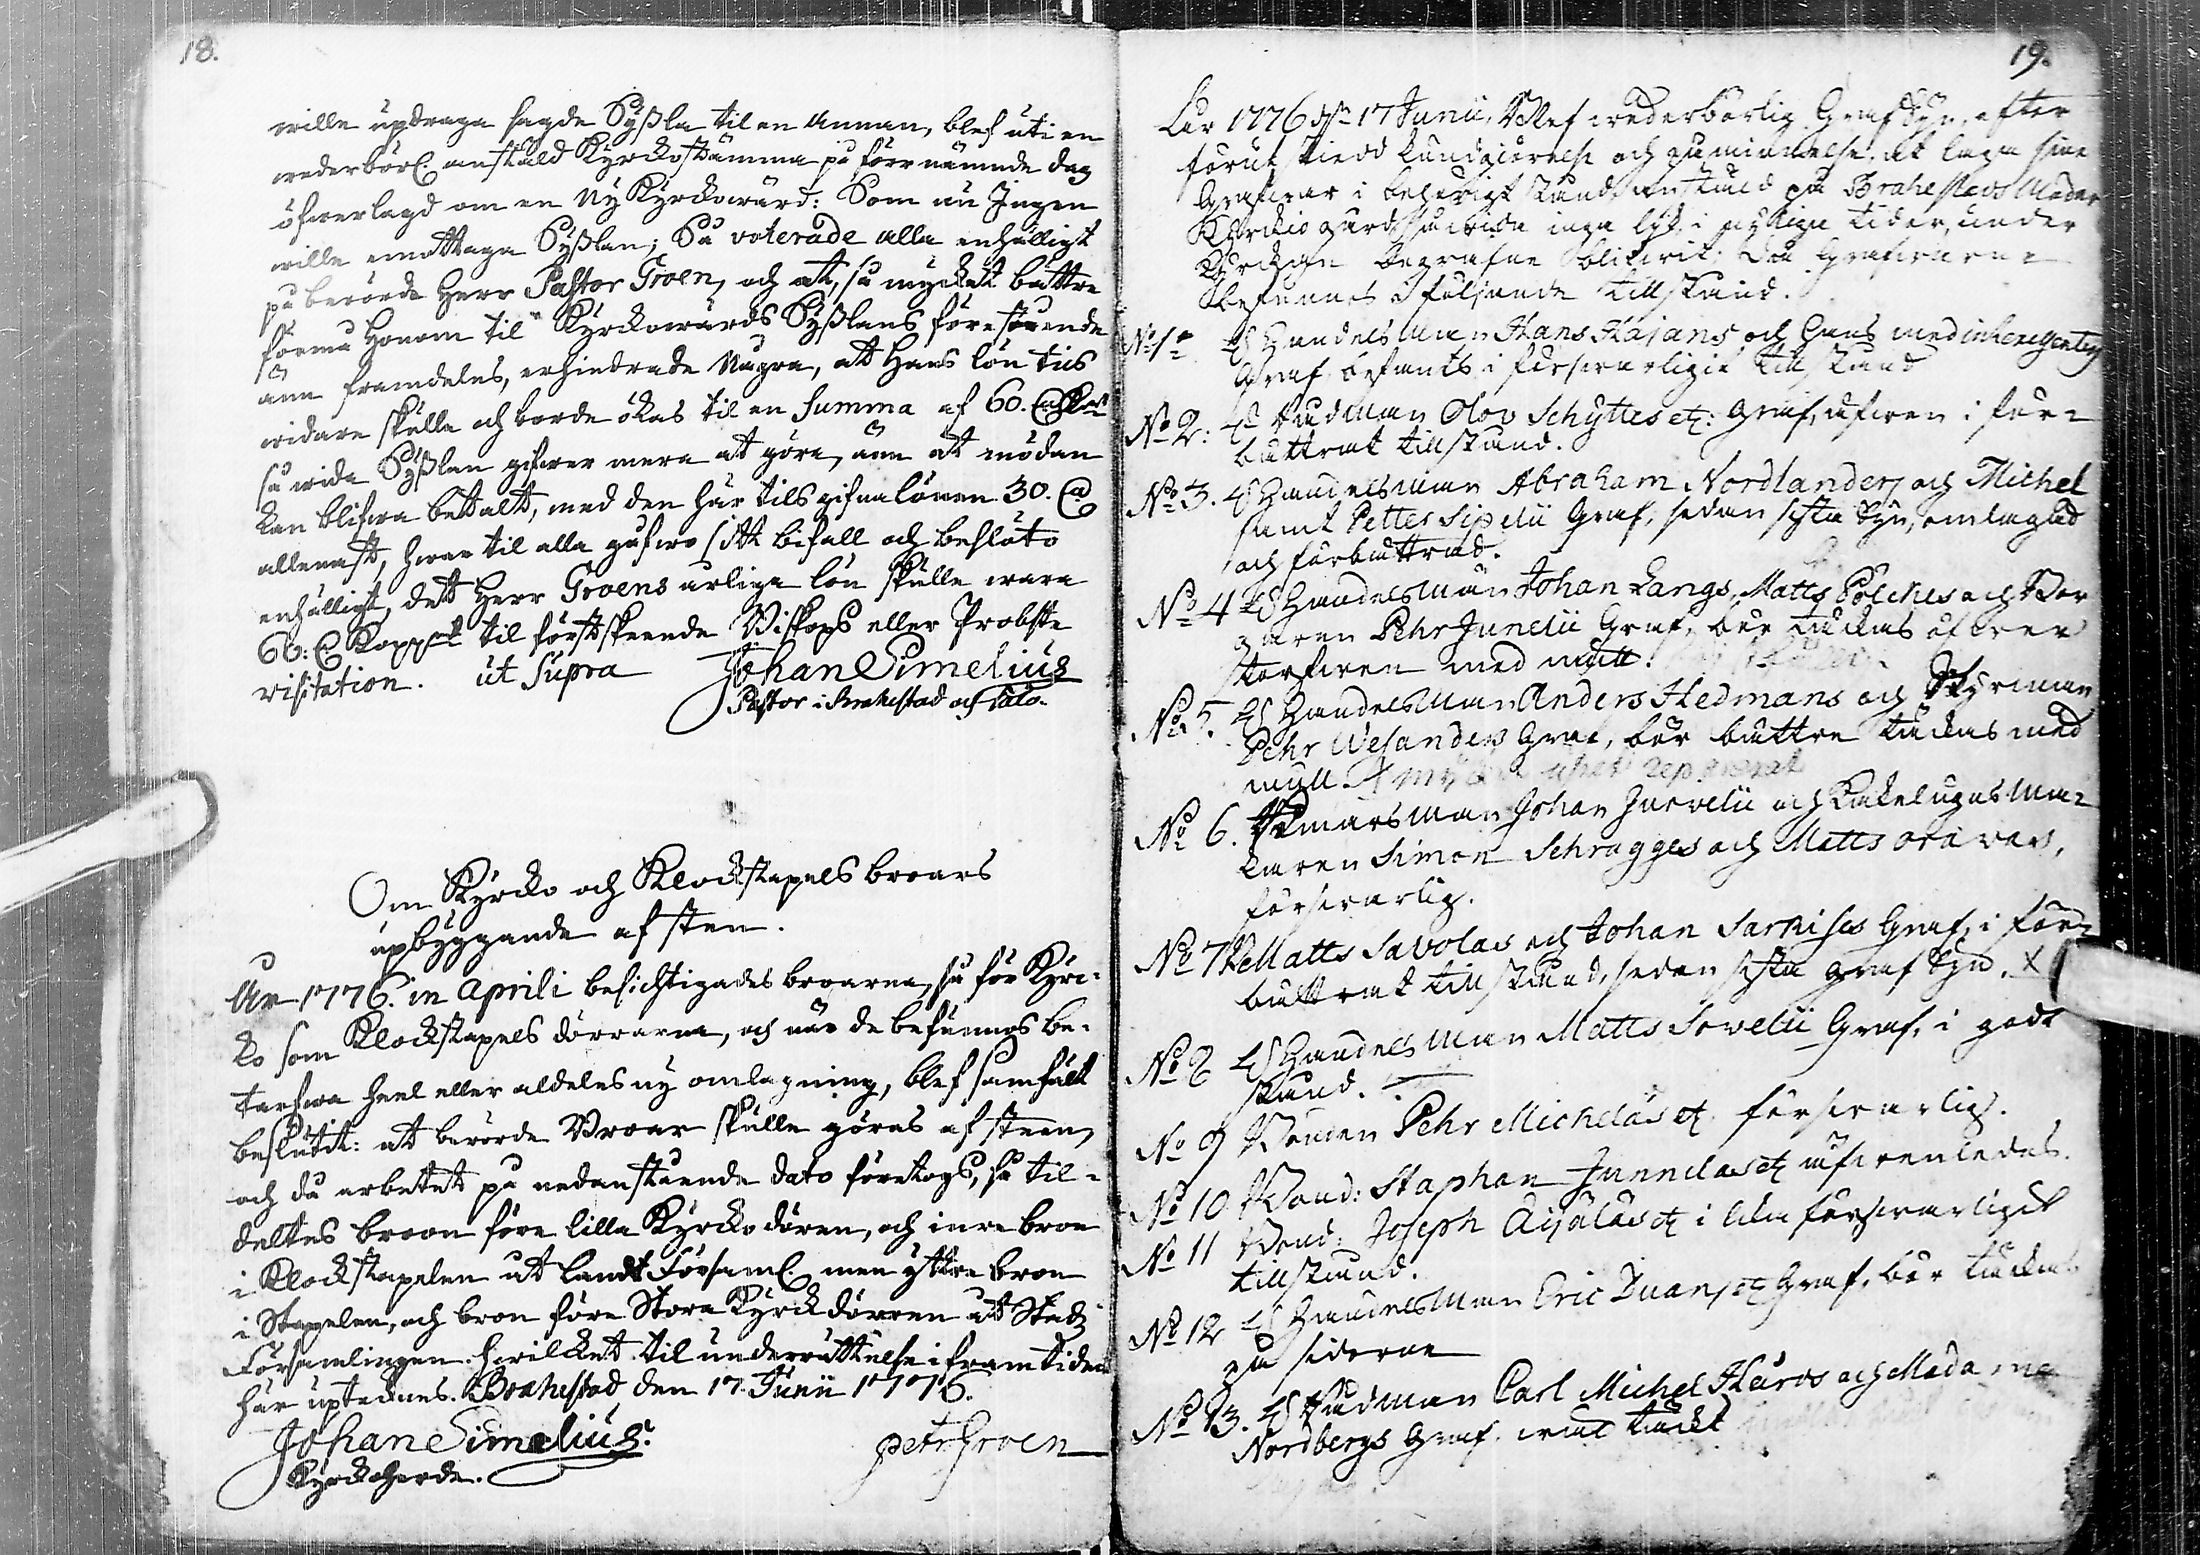 18.
wille updraga sagde Sysla til en annan, blef uti en
wederbörl. anstäld Kyrckostämma på förr nämnde dag
öfwerlagd om en ny Kyrckowärd: Som nu Ingen
wille emottaga Syslan; Så voterade alla enhälligt
på berörde Herr Pastor Groen, och at, så mycket bättre
förmå Honom til Kyrckowärds Syslans förestående
än framdeles, erhindrade Några, att Hans lön tils
widare skulle och borde ökas til en summa af 60.
så wida Syslan gifwer mera at göra, än at mödan
kan blifwa bettalt, med den här tils gifna lönen 30.
allenast, hwar til alla gåfwo sitt bifall och beslöto
enhälligt, dett Herr Groens årliga lön skulle wara
60: Kopp til förstskeende Biskops eller Probste
visitation. ut supra Johan Simelius
Pastor i Brahestad och Salo.
Om Kyrcko och Klockstapels broars
upbyggande af sten.
År 1776. in Aprili besichtigades broarna, så för Kyrc-
ko som Klockstapels dörrarne, och när de befunnos be-
tarfwa heel eller aldeles ny omlagning, blef samfält
beslutit: att berörde Broar skulle göras af steen,
och då arbetet på nedanstående dato företogs, så til-
deltes broon före lilla Kyrckodören, och inre bron
i Klockstapelen åt landt Församl. men yttre bron
i Stapelen, och bron före Stora Kyrckdörren åt Stads
Församlingen. hwilcket til underrättelse i framtiden
här uptecknes. Brahestad den 17. Junii 1776.
Johan Simelius. Petr Groen
Kyrckoherde.
19.
åhr 1776 d. 17 Junii, Blef wederbörlig Graf Syn, efter
förut skiedd kundgiörelse och påminnelse, at laga sine
Grafwar i behörigt stånd, anstäld på Brahestads Nedre
Kyrckiogård, hwarest inga lyk, i nyliga tider, under
Kyrckan begrafne blifwit; då Grafwarne
befunnos i följande tillstånd.
No 1. Handelsman Hans Kajans och hans med
Graf, befants i förswarligit tillstånd
No 2: Rådman Olov Schyttes etc: Graf, äfwen i för-
bättrat tillstånd.
No 3. Handelsman Abraham Nordlanders och Michel
samt Petter Sipelii Graf, sedan sista Syn, omlagad
och förbättrad.
No 4 Handelsman Johan Langs, Matts Pölckes och Bor
garen Pehr Junelii Graf, bör täckas öfwer
med mull.
No 5. Handelsman Anders Hedmans och Styrman
Pehr Wesanders Graf, bör bättre täckas med
mull.
No 6. Johan Jurvelii och Kakelugns Ma-
karen Simon Schragges och Matts
förswarlig.
No 7 Matts Savolas och Johan Sarkises Graf, i för-
bättrat tillstånd, sedan sista graf Syn. X
No 8 Handelsman Matts Sovelii Graf, i godt
stånd.
No 9 Bonden Pehr Mickeläs etc. förswarlig.
No 10 Bond: Staphan Junnilas etc äfwenledes.
No 11 Bond: Joseph Äijäläs etc i lika förswarligit
tillstånd.
No 12 Handelsman Eric etc Graf, bör täckas
på siderne
No 13. Rådman Carl Michel och Madame
Nordbergs Graf. täckt